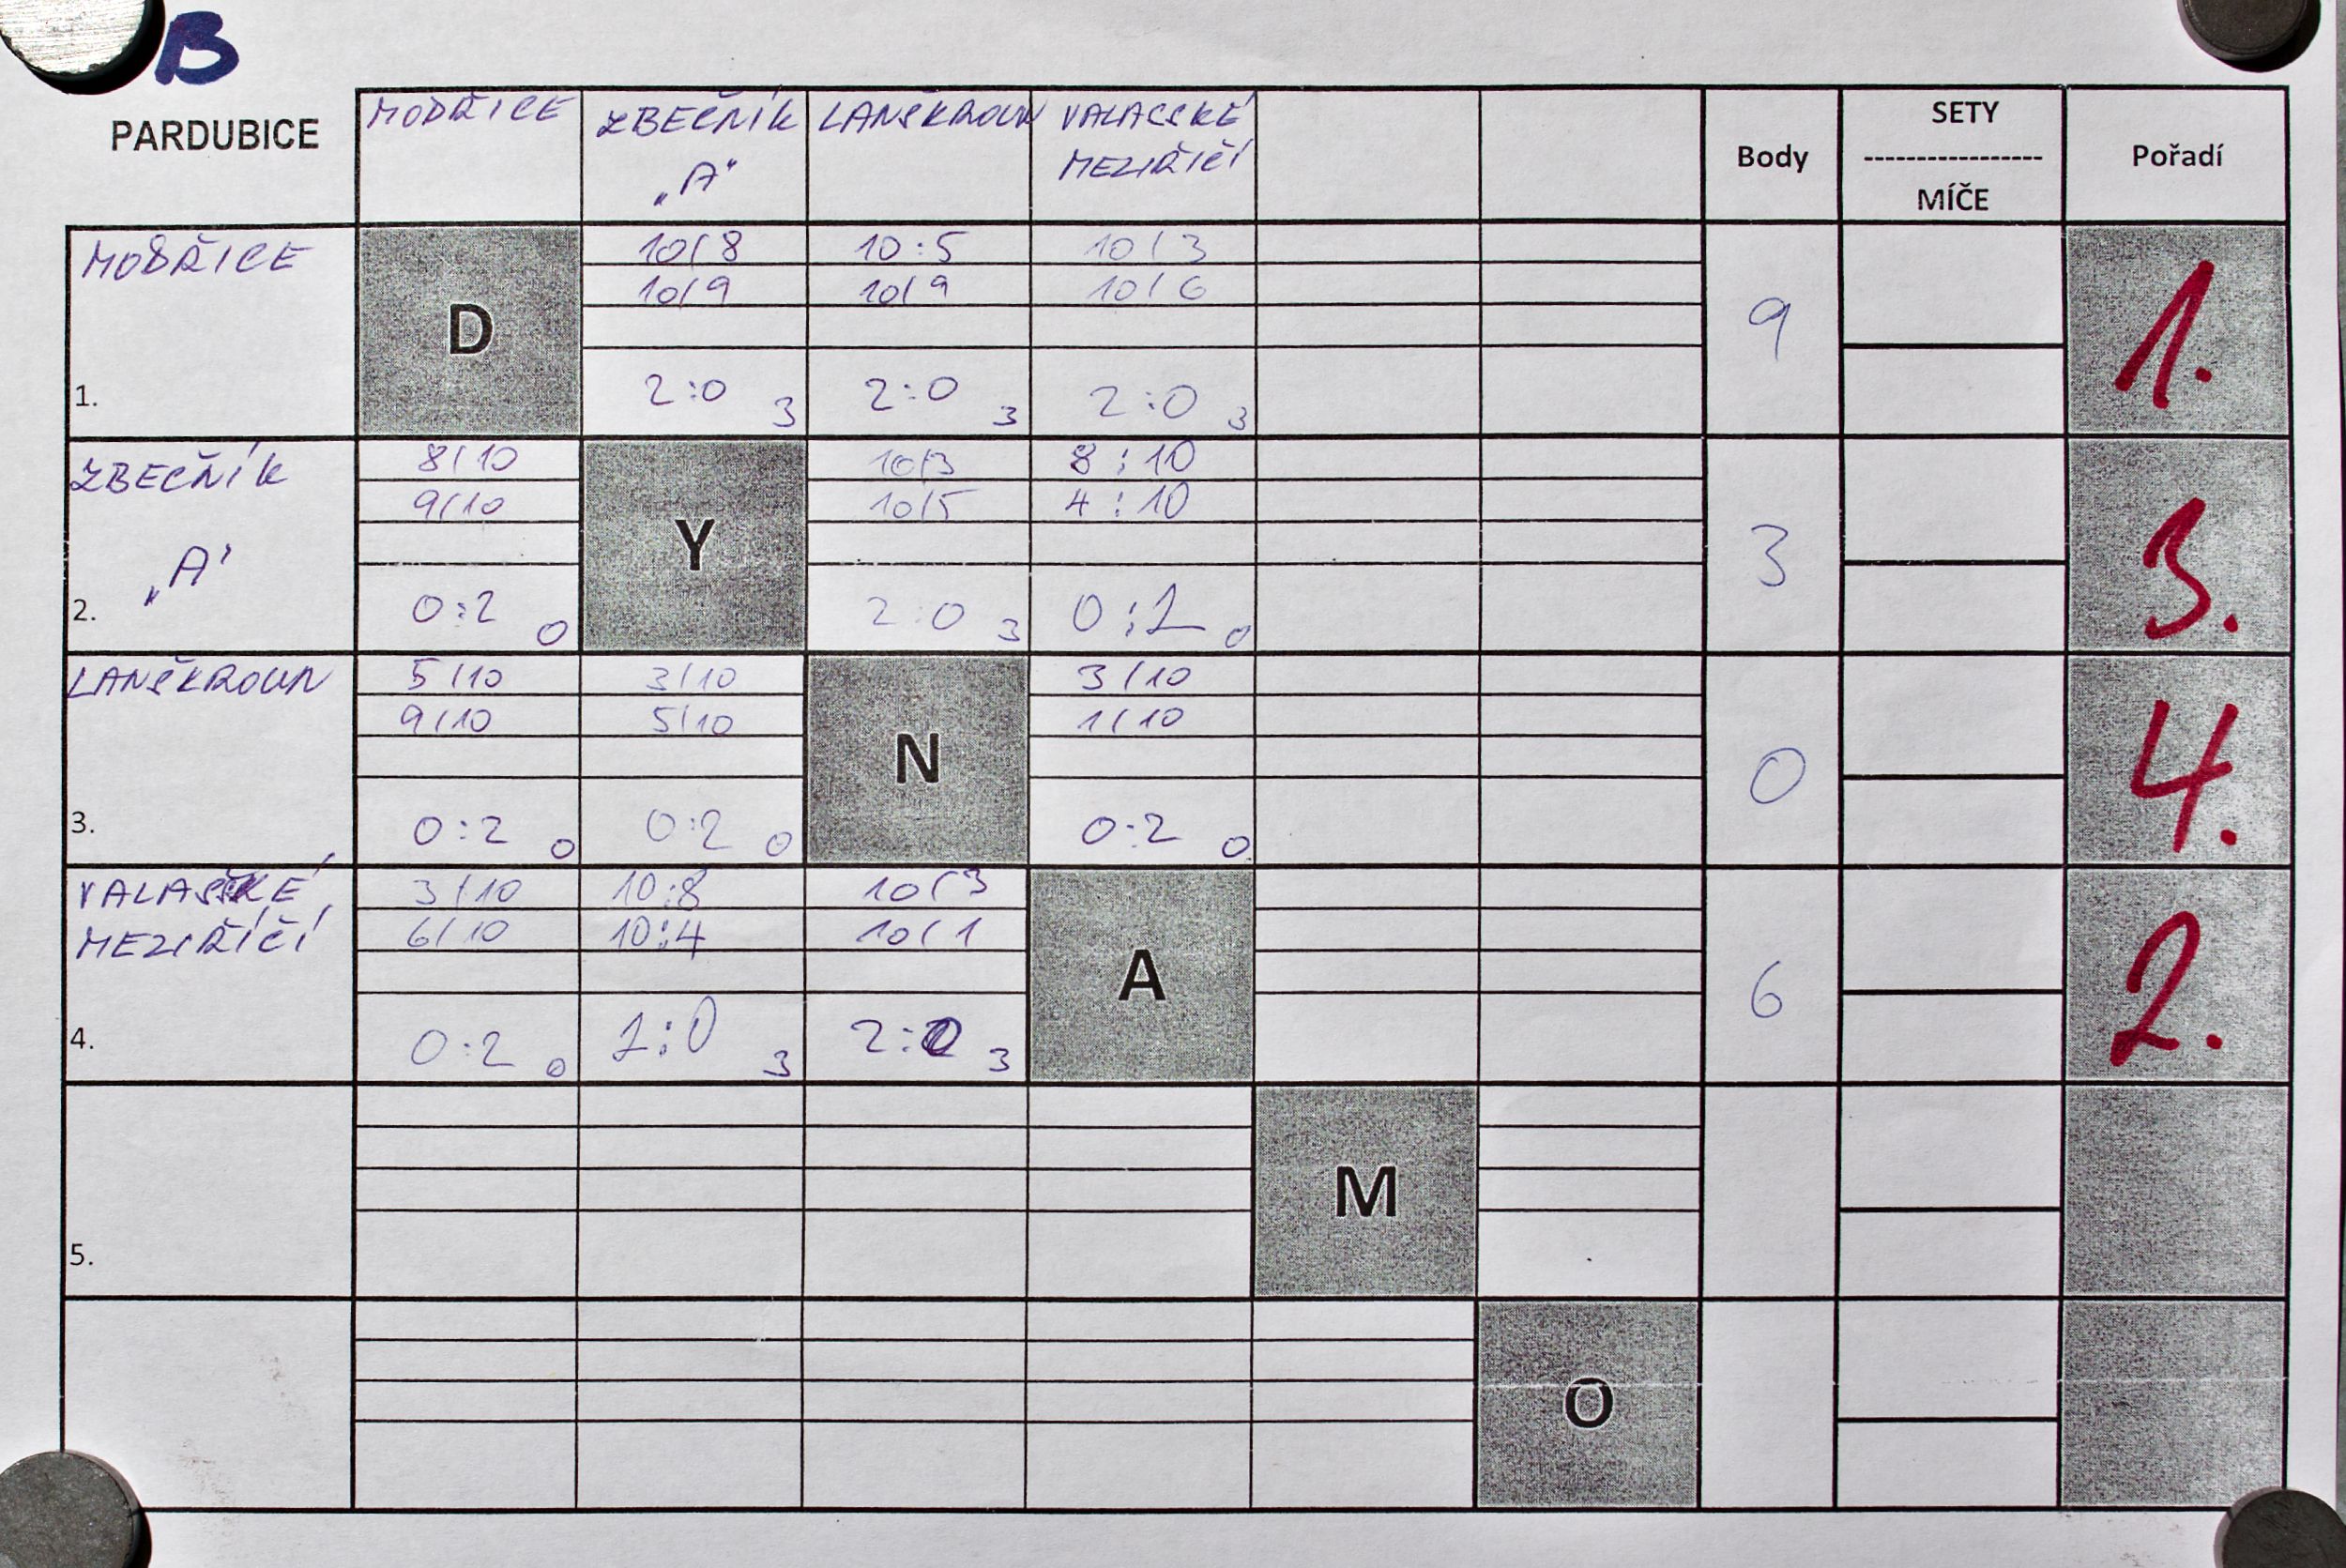 B
PARDUBICE
MODŘICE ZBEČNÍK LANŠKROUN VALASSKÉ
„A“ MEZIŘIČÍ
Body
SETY
-----------------
MÍČE
Pořadí
MODŘICE
1.
D
10/8 10:5 10/3
10/9 10/9 10/6
2:0 3 2:0 3 2:0 3
9
1.
ZBEČNÍK
„A“
2.
8/10 10/3 8:10
9/10 10/5 4:10
Y
0:2 0 2:0 3 0:2 0
3
3.
LANŠKROUN
3.
5/10 3/10 3/10
9/10 5/10 1/10
N
0:2 0 0:2 0 0:2 0
0
4.
VALAŠSKÉ
MEZIŘÍČÍ
4.
3/10 10:8 10/3
6/10 10:4 10/1
A
0:2 0 2:0 3 2:0 3
6
2.
5.
M
O